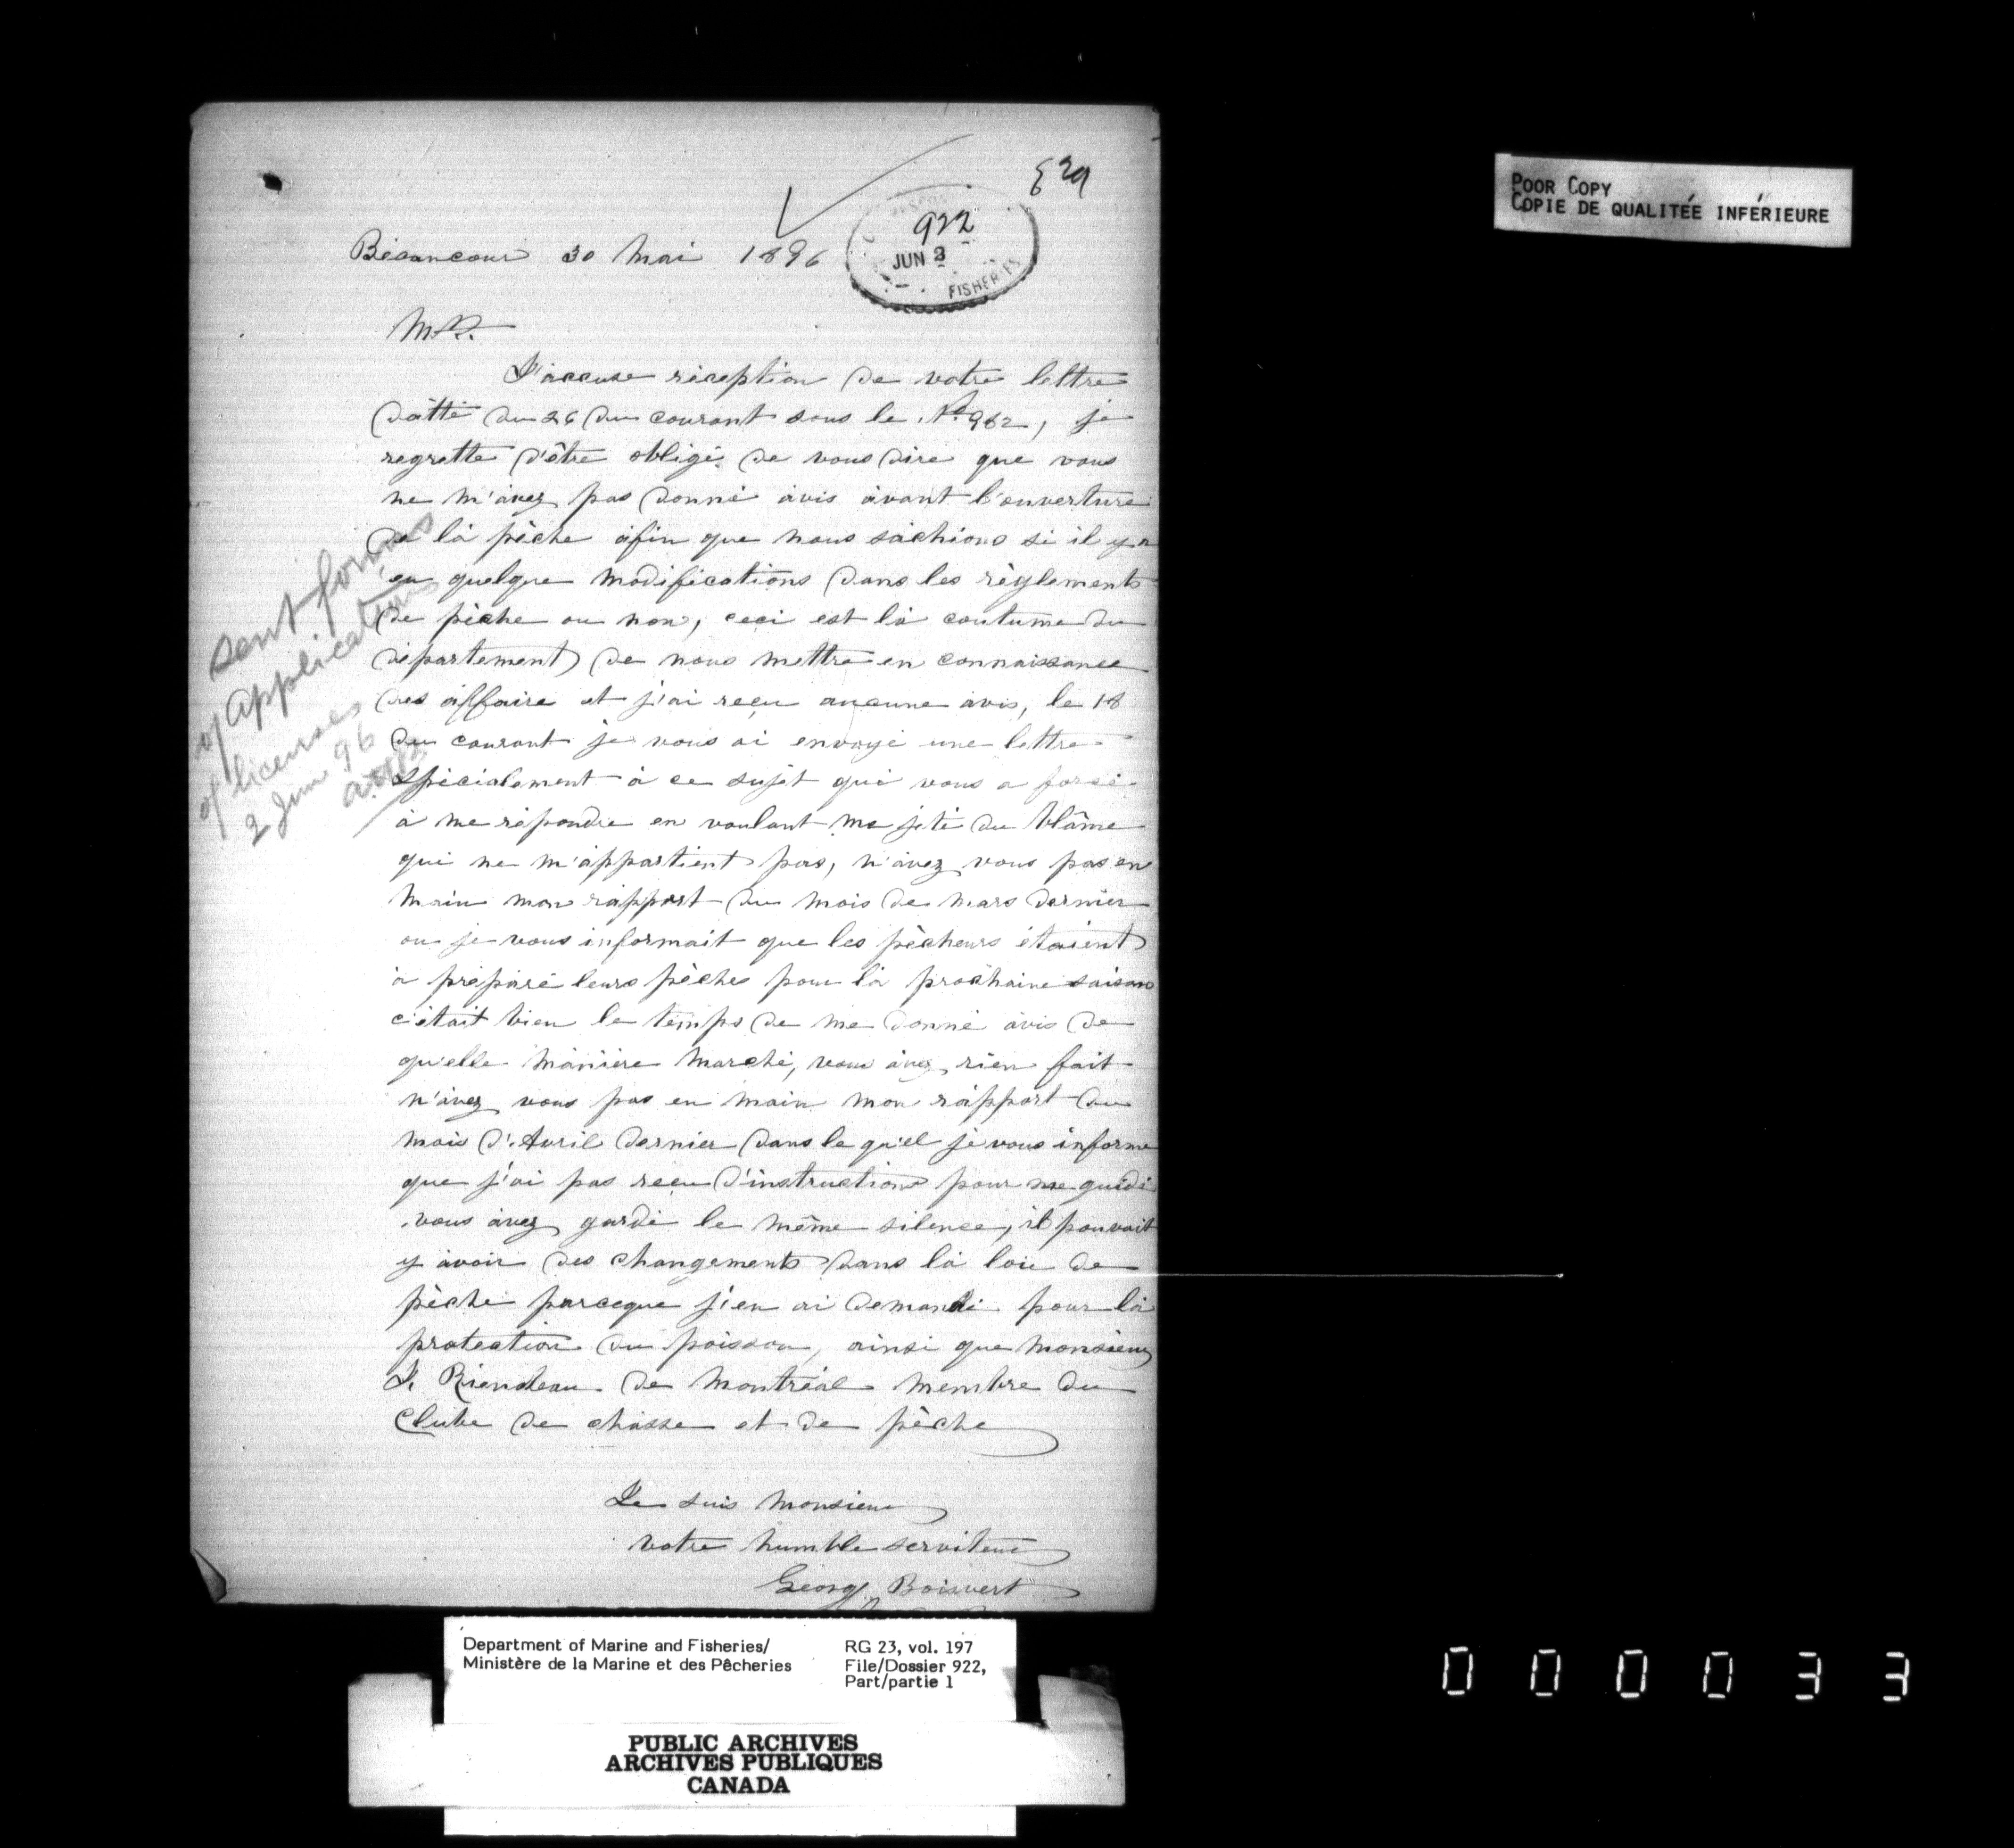 829
922
JUN 3
FISHERIES
Bécancour 30 Mai 1896
Mr.
J'accuse réception de votre lettre
dâtté du 26 du courant sous le No 922, je
regrette d'être obligé de vous dire que vous
ne m'avez pas donné avis avant l'ouverture
de là pêche afin que nous sachions si il y a
eu quelque modifications dans les règlements
de pêche ou non, ceci est là coutume du
département de nous mettre en connaissance
des affaire et j'ai reçu aucune avis, le 18
du courant je vous ai envoyé une lettre
spécialement à ce sujet qui vous a forcé
à me répondre en voulant me jeté du blâme
qui ne m'appartient pas, n'avez vous pas en
main mon rapport du mois de mars dernier
ou je vous informait que les pêcheurs étaient
à préparé leurs pêches pour là prochaine saison
c'était bien le temps de me donné avis de
qu'elle manière marché, vous avez rien fait
n'avez vous pas en main mon rapport du
mois d'Avril dernier dans le qu'el je vous informe
que j'ai pas reçu d'instructions pour me guidé
vous avez gardé le même silence, il pouvait
y avoir des changements dans là loie de
pêche parceque j'en ai demandé pour là
protection du poisson, ainsi que monsieur
J. Riendeau de Montréal membre du
Clube de chasse et de pêche
Je suis monsieur
votre humble serviteur
Georg Boisvert
sent forms
of applications
of licenses
2 June 96
POOR COPY
COPIE DE QUALITÉE INFÉRIEURE
Department of Marine and Fisheries/
Ministère de la Marine et des Pêcheries
RG 23, vol. 197
File/Dossier 922,
Part/partie 1
PUBLIC ARCHIVES
ARCHIVES PUBLIQUES
CANADA
000033